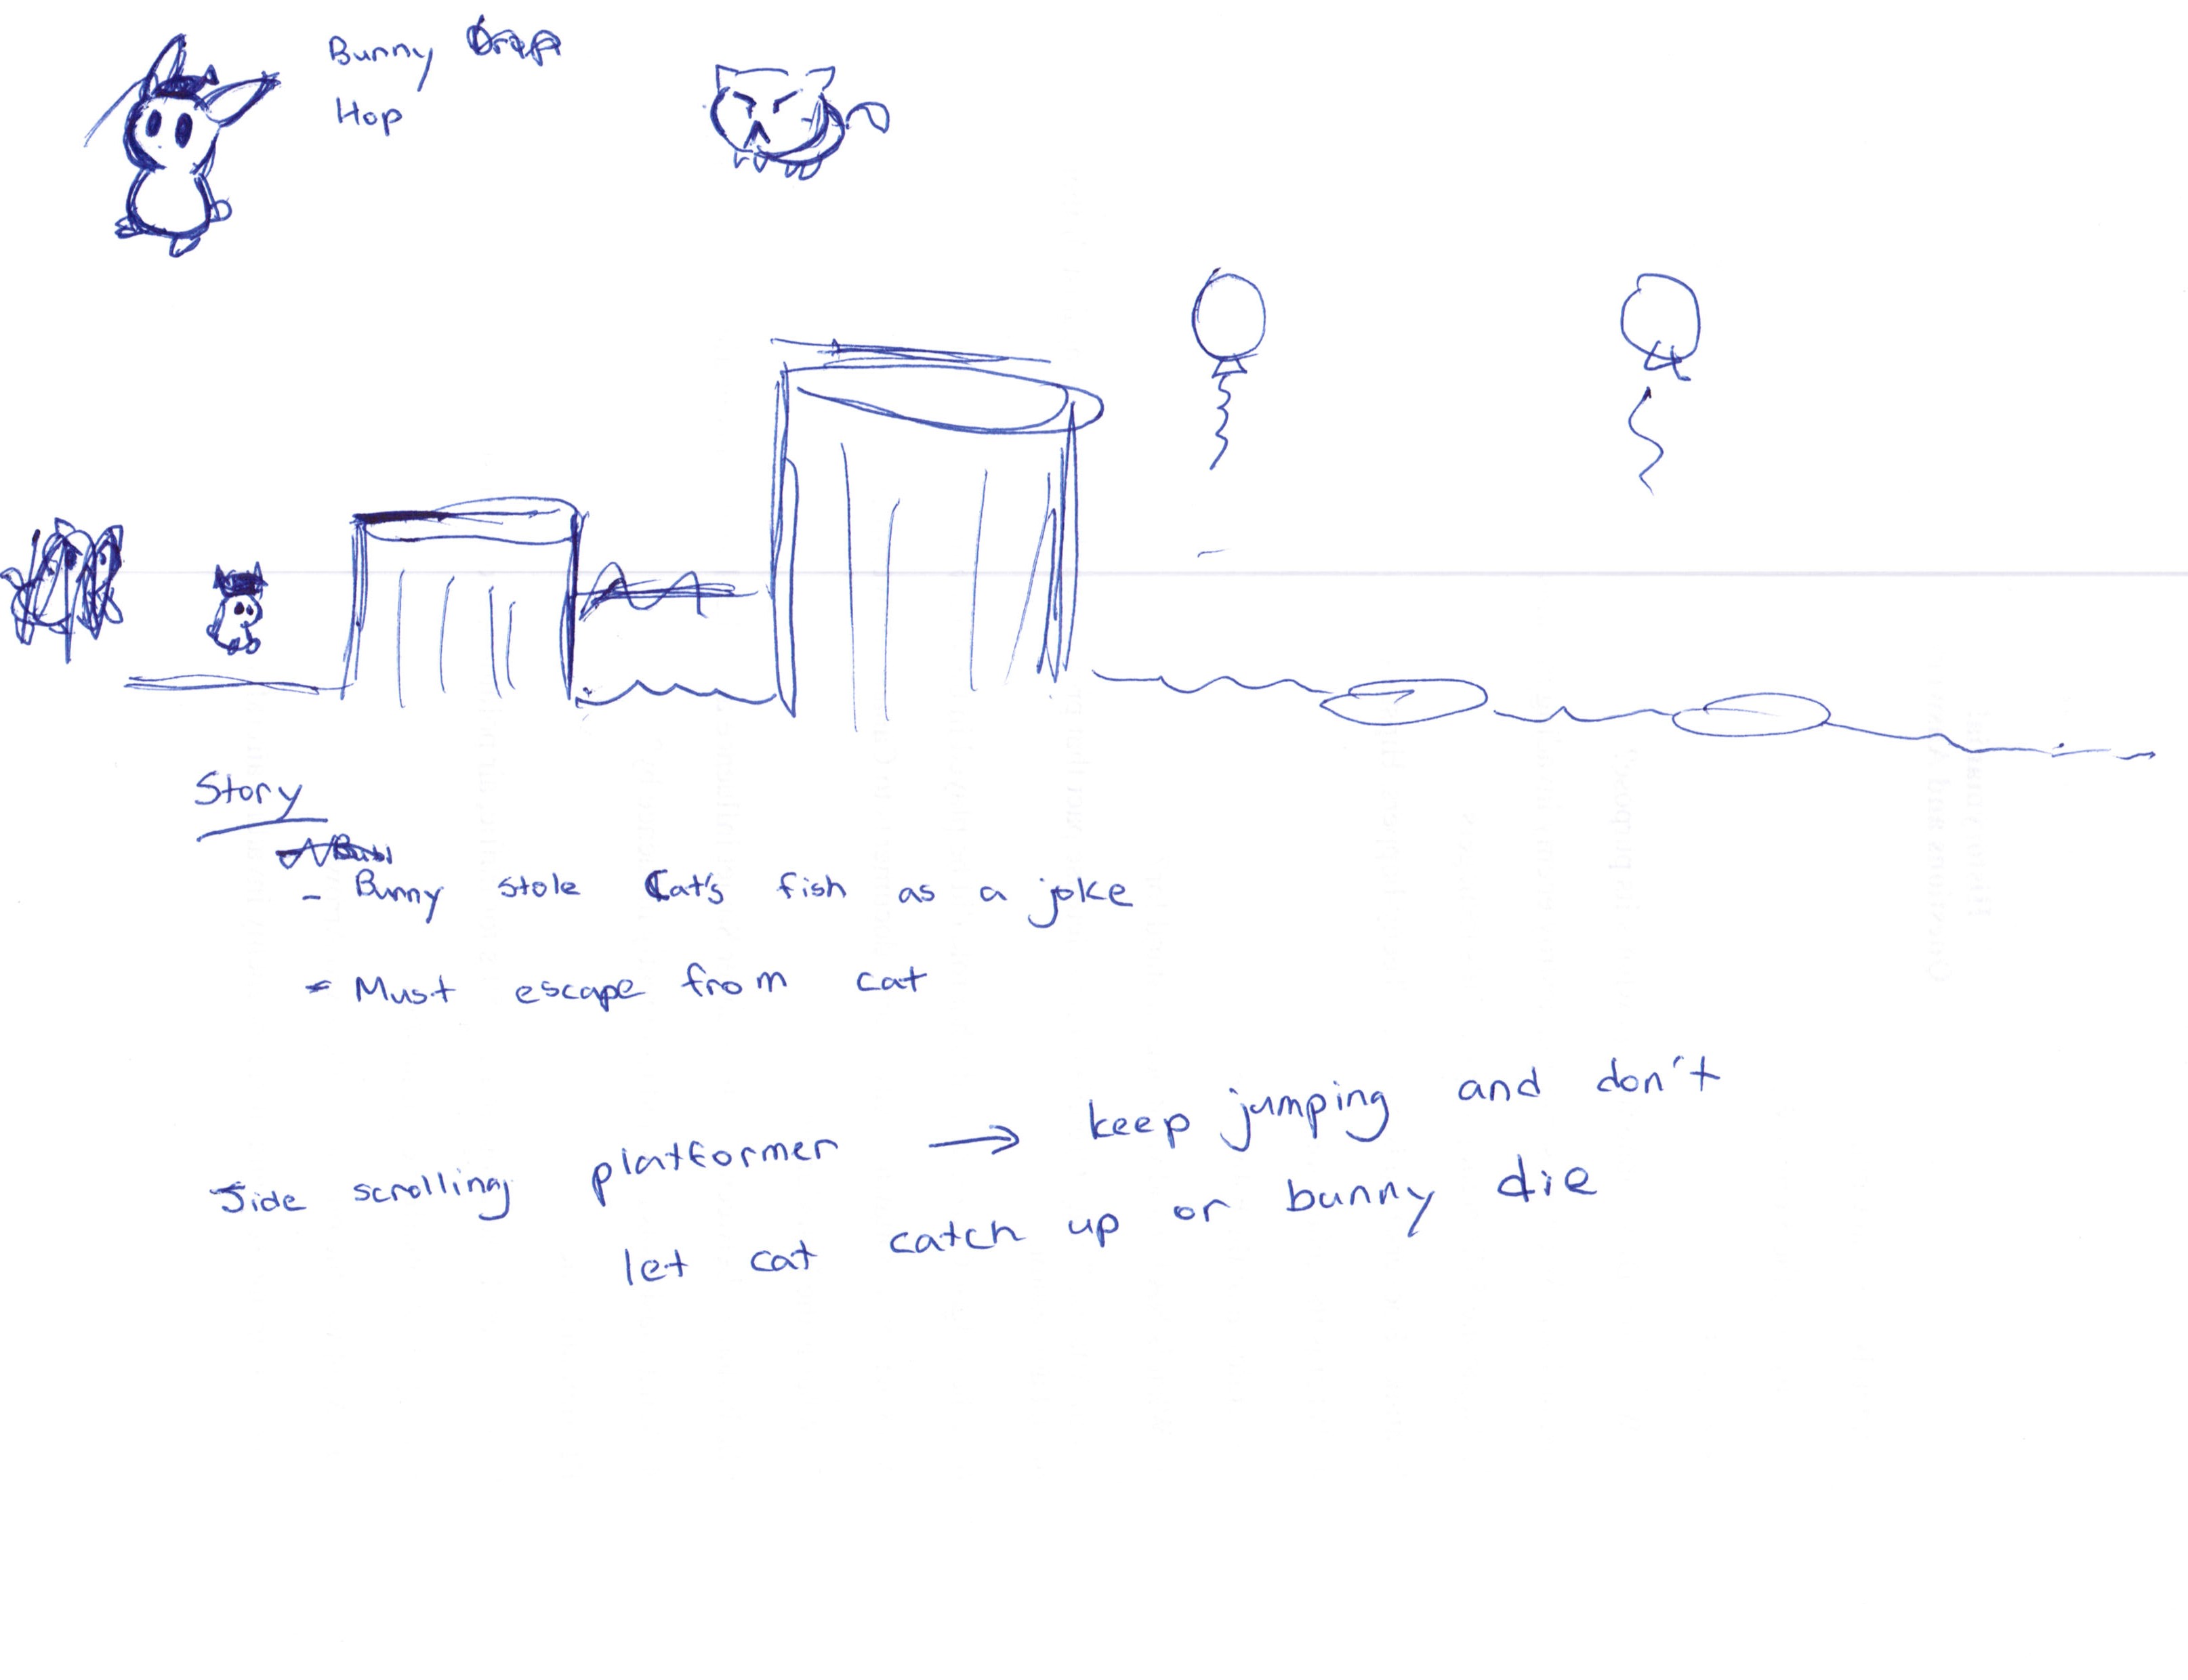 Bunny
Hop
Story
- Bunny stole Cat's fish as a joke
- Must escape from cat
Side scrolling platformer → keep jumping and don't
let cat catch up or bunny die